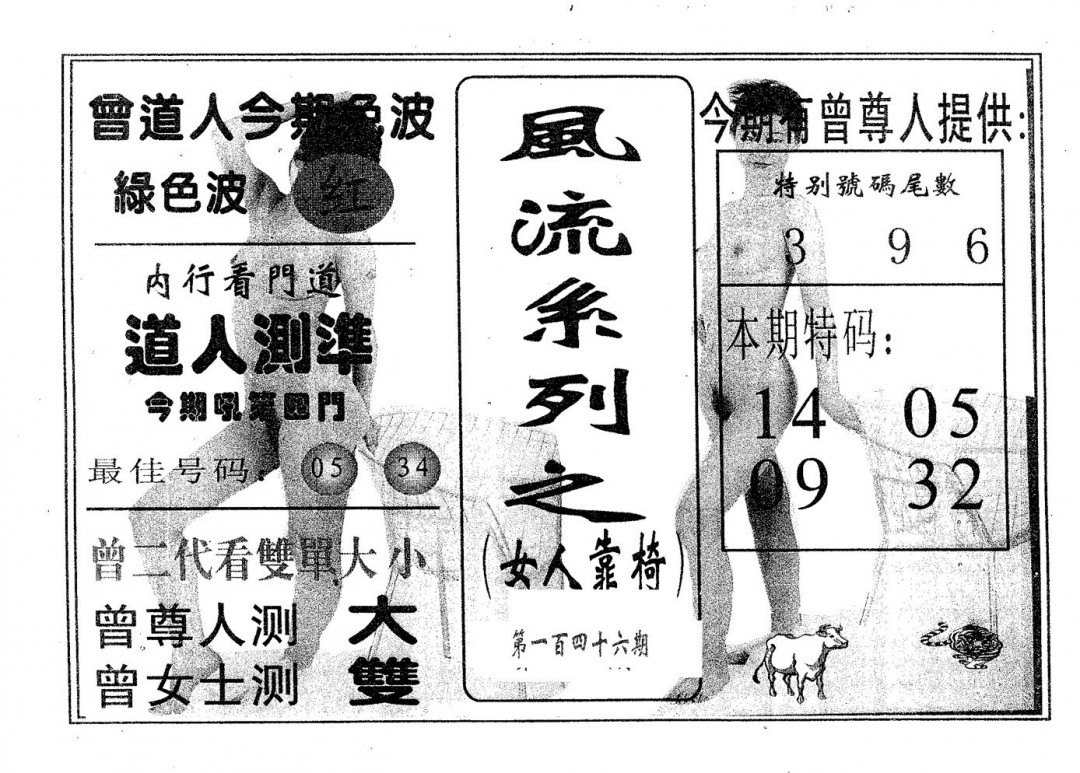 曾道人今期色波
綠色波 红
内行看門道
道人測準
今期吼第四門
最佳号码: 05 34
曾二代看雙單大小
曾尊人测 大
曾女士测 雙
風流系列之
(女人靠椅)
第一百四十六期
今期有曾尊人提供:
特别號碼尾數
3 9 6
本期特码:
14 05
09 32